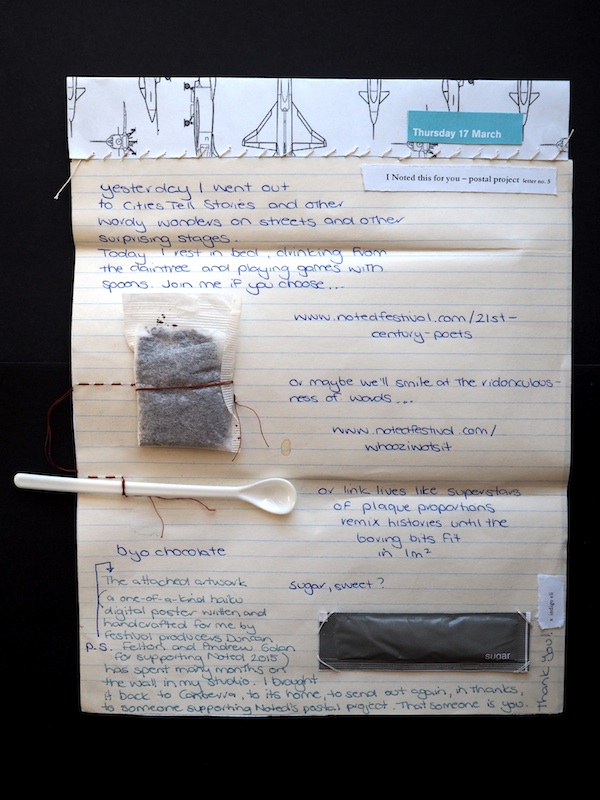 Thursday 17 March
I Noted this for you – postal project letter no. 5
yesterday I went out
to Cities Tell Stories and other
wordy wonders on streets and other
surprising stages.
Today I rest in bed, drinking from
the daintree and playing games with
spoons. Join me if you choose...
www.notedfestival.com/21st-
century-poets
or maybe we'll smile at the ridonculous-
ness of words...
www.notedfestival.com/
whooziwotsit
or link lives like superstars
of plaque proportions
remix histories until the
boring bits fit
in 1m²
byo chocolate
sugar, sweet?
sugar
The attached artwork
(a one-of-a-kind haiku
digital poster written and
handcrafted for me by
festival producers Duncan
P.S. Felton and Andrew Galan
for supporting Noted 2015)
has spent many months on
the wall in my studio. I brought
it back to Canberra, to its home, to send out again, in thanks,
to someone supporting Noted's postal project. That someone is you.
Thank you!
x indigo eli